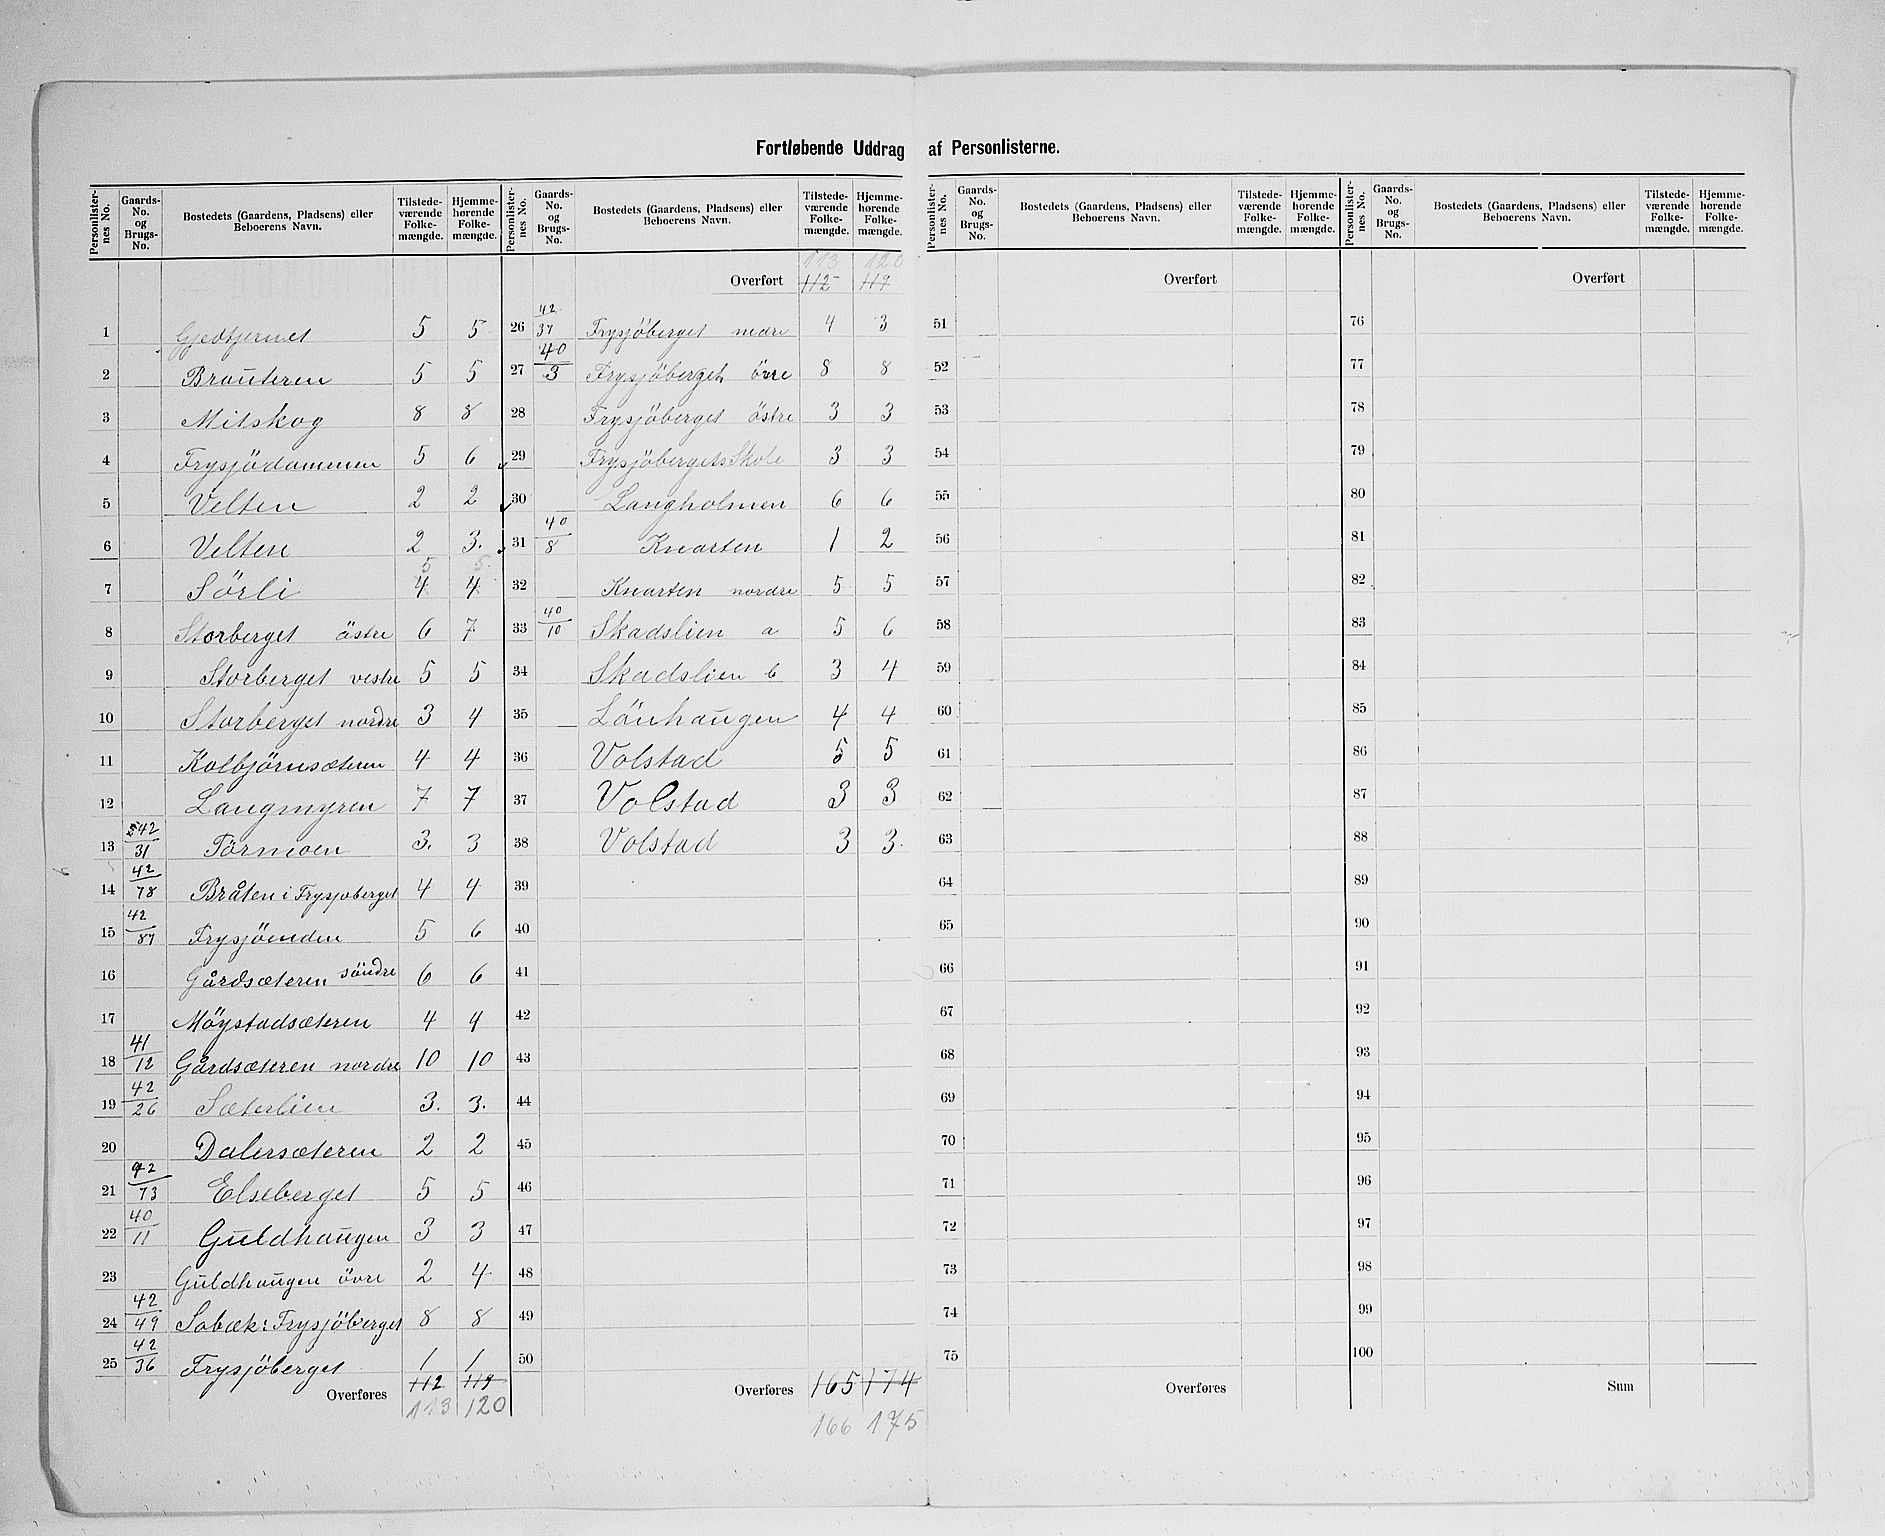 Fortløbende Uddrag af Personlisterne.
Personlisternes No. | Gaards-No. og Brugs-No. | Bostedets (Gaardens, Pladsens) eller Beboerens Navn. | Tilstedeværende Folkemængde. | Hjemmehørende Folkemængde.
1 Gjedtjernet 5 5
2 Brauteren 5 5
3 Mitskog 8 8
4 Frysjödammen 5 6
5 Velten 2 2
6 Velten 2 3.
5 5
7 Sörli 4 4
8 Storberget östre 6 7
9 Storberget vestre 5 5
10 Storberget nordre 3 4
11 Kolbjörnsæteren 4 4
12 Langmyren 7 7
13 42/31 Törmoen 3. 3
14 42/78 Bråten i Frysjoberget 4 4
15 42/87 Frysjöenden 5 6
16 Gårdsæteren söndre 6 6
17 Möystadsæteren 4 4
18 41/12 Gårdsæteren nordre 10 10
19 42/26 Sæterlien 3. 3.
20 Dalersæteren 2 2
21 42/73 Elseberget 5 5
22 40/11 Guldhaugen 3 3
23 Guldhaugen övre 2 4
24 42/49 Sobæk: Frysjöberget 8 8
25 42/36 Frysjöberget 1 1
Overføres 112 119
113 120
Personlisternes No. | Gaards-No. og Brugs-No. | Bostedets (Gaardens, Pladsens) eller Beboerens Navn. | Tilstedeværende Folkemængde. | Hjemmehørende Folkemængde.
113 120
Overført 112 119
26 42/37 Frysjöberget nedre 4 3
27 40/3 Frysjöberget, övre 8 8
28 Frysjöberget östre 3 3
29 Frysjöbergets Skole 3 3
30 Langholmen 6 6
31 40/8 Knarten 1 2
32 Knarten nordre 5 5
33 40/10 Skadslien a 5 6
34 Skadslien b 3 4
35 Lönhaugen 4 4
36 Volstad 5 5
37 Volstad 3 3
38 Volstad 3 3.
39
40
41
42
43
44
45
46
47
48
49
50
Overføres 165 174
166 175
Personlisternes No. | Gaards-No. og Brugs-No. | Bostedets (Gaardens, Pladsens) eller Beboerens Navn. | Tilstedeværende Folkemængde. | Hjemmehørende Folkemængde.
Overført
51
52
53
54
55
56
57
58
59
60
61
62
63
64
65
66
67
68
69
70
71
72
73
74
75
Overføres
Personlisternes No. | Gaards-No. og Brugs-No. | Bostedets (Gaardens, Pladsens) eller Beboerens Navn. | Tilstedeværende Folkemængde. | Hjemmehørende Folkemængde.
Overført
76
77
78
79
80
81
82
83
84
85
86
87
88
89
90
91
92
93
94
95
96
97
98
99
100
Sum